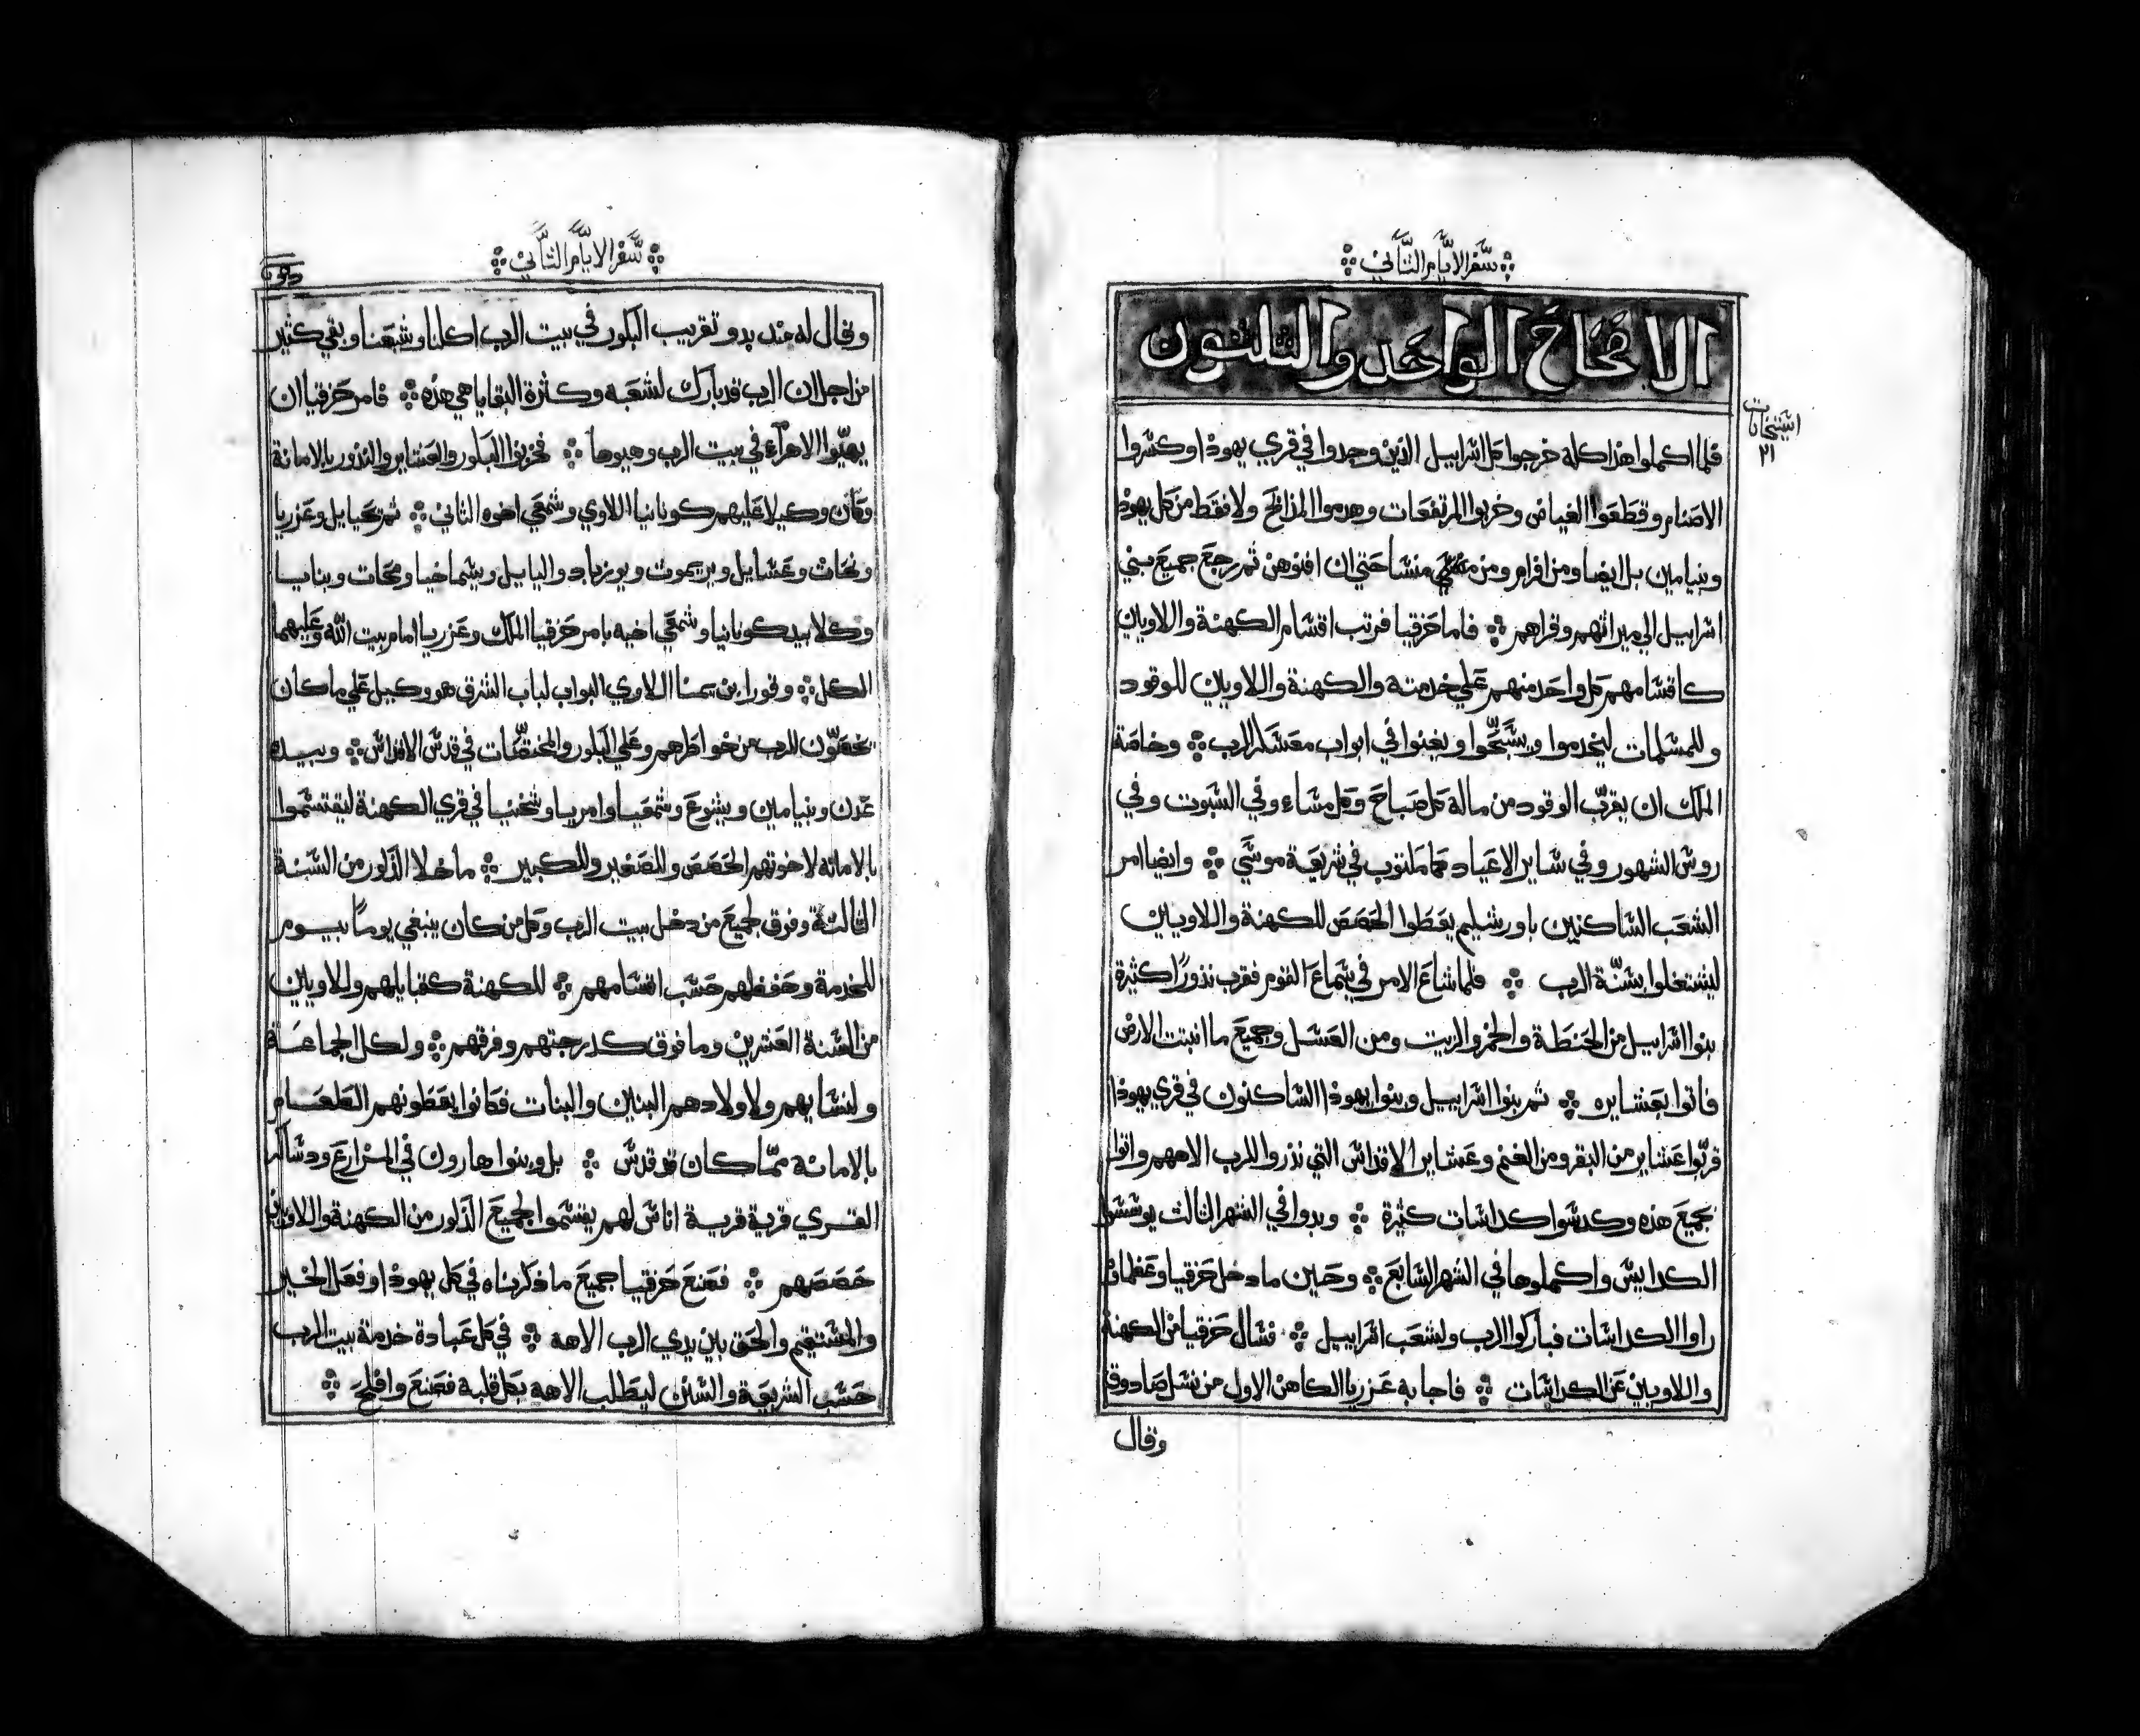 سفر الايام الثاني
الاصحاح الواحد والثلثون
استيخانات
٢١
فلما اكملوا هذا كله خرجوا كل اسراييل الذين وجدوا في قري يهوذا وكسروا
الاصنام وقطعوا الغياض وخربوا المرتفعات وهدموا المذابح ولا فقط من كل يهوذا
وبنيامين بل ايضا ومن افرام ومن منسا حتي ان افنوهن ثم رجع جميع بني
اسراييل الي ميراثهم وقراهم فاما حزقيا فرتب اقسام الكهنة واللاويين
كاقسامهم كل واحد منهم علي خدمته والكهنة واللاويين للوقود
وللمسلمات ليخدموا ويسبحوا ويغنوا في ابواب معسكر الرب وخاصة
الملك ان يقرب الوقود من ماله كل صباح وكل مساء وفي السبوت وفي
روس الشهور وفي ساير الاعياد كما مكتوب في شريعة موسي وايضا امر
الشعب الساكنين باورشليم يعطوا الحصص للكهنة واللاويين
ليشتغلوا بسنة الرب فلما شاع الامر في سماع القوم فقرب نذورا كثيرة
بنوا اسراييل من الحنطة والخمر والزيت ومن العسل وجميع ما انبتت الارض
فاتوا بعشايره ثم بنوا اسراييل وبنوا يهوذا الساكنون في قري يهوذا
قربوا عشاير من البقر ومن الغنم وعشاير الاقداس التي نذروا للرب الاههم واتوا
بجميع هذه وكدسوا كداسات كثيرة وبدوا في الشهر الثالث يوسسوا
الكداديس واكملوها في الشهر السابع وحين ما دخل حزقيا وعظماوه
راوا الكداسات فباركوا الرب ولشعب اسراييل فسال حزقيا من الكهنة
واللاويين عن الكداسات فاجابه عزريا الكاهن الاول من نسل صادوق
وقال
سفر الايام الثاني
وقال له منذ بدو تقريب البكور في بيت الرب اكلنا وشبعنا وبقي كثير
من اجل ان الرب قد بارك لشعبه وكثرة البقايا هي هذه فامر حزقيا ان
يهيوا الاهراء في بيت الرب وهيوها فخزنوا البكور والعشاير والنذور بالامانة
وكان وكيلا عليهم كونانيا اللاوي وشمعي اخوه الثاني ثم يحيايل وعزريا
ونحات وعسايل ويريموت ويوزباد واليايل ويسماخيا ومحات وبنايا
وكلا بيد كونانيا وشمعي اخيه بامر حزقيا الملك وعزريا امام بيت الله وعليهما
الكل وقورا بن يمنا اللاوي البواب لباب الشرق هو وكيل علي ما كان
يخصون للرب من خواطرهم وعلي البكور والمختصات في قدس الاقداس وبيده
عدن وبنيامين ويشوع وشمعيا وامريا وشخنيا في قري الكهنة ليقتسموا
بالامانه لاخوتهم الحصص وللصغير وللكبير ما خلا الذكور من السنة
الثالثة وفوق لجميع من دخل بيت الرب وكل من كان ينبغي يوما بيوم
للخدمة وحفظهم حسب اقسامهم للكهنة كقبايلهم وللاويين
من السنة العشرين وما فوق كدرجتهم وفرقهم ولكل الجماعة
ولنسايهم ولاولادهم البنين والبنات فكانوا يعطونهم الطعام
بالامانه مما كان قد قدس بل وبنوا هارون في المزارع ودساكر
القري قرية قرية اناس لهم يقسموا لجميع الذكور من الكهنة واللاويين
حصصهم فصنع حزقيا جميع ما ذكرناه في كل يهوذا وفعل الخير
والمستقيم والحق بين يدي الرب الاهه في كل عبادة خدمة بيت الرب
حسب الشريعة والسنن ليطلب الاهه بكل قلبه فصنع وافلح